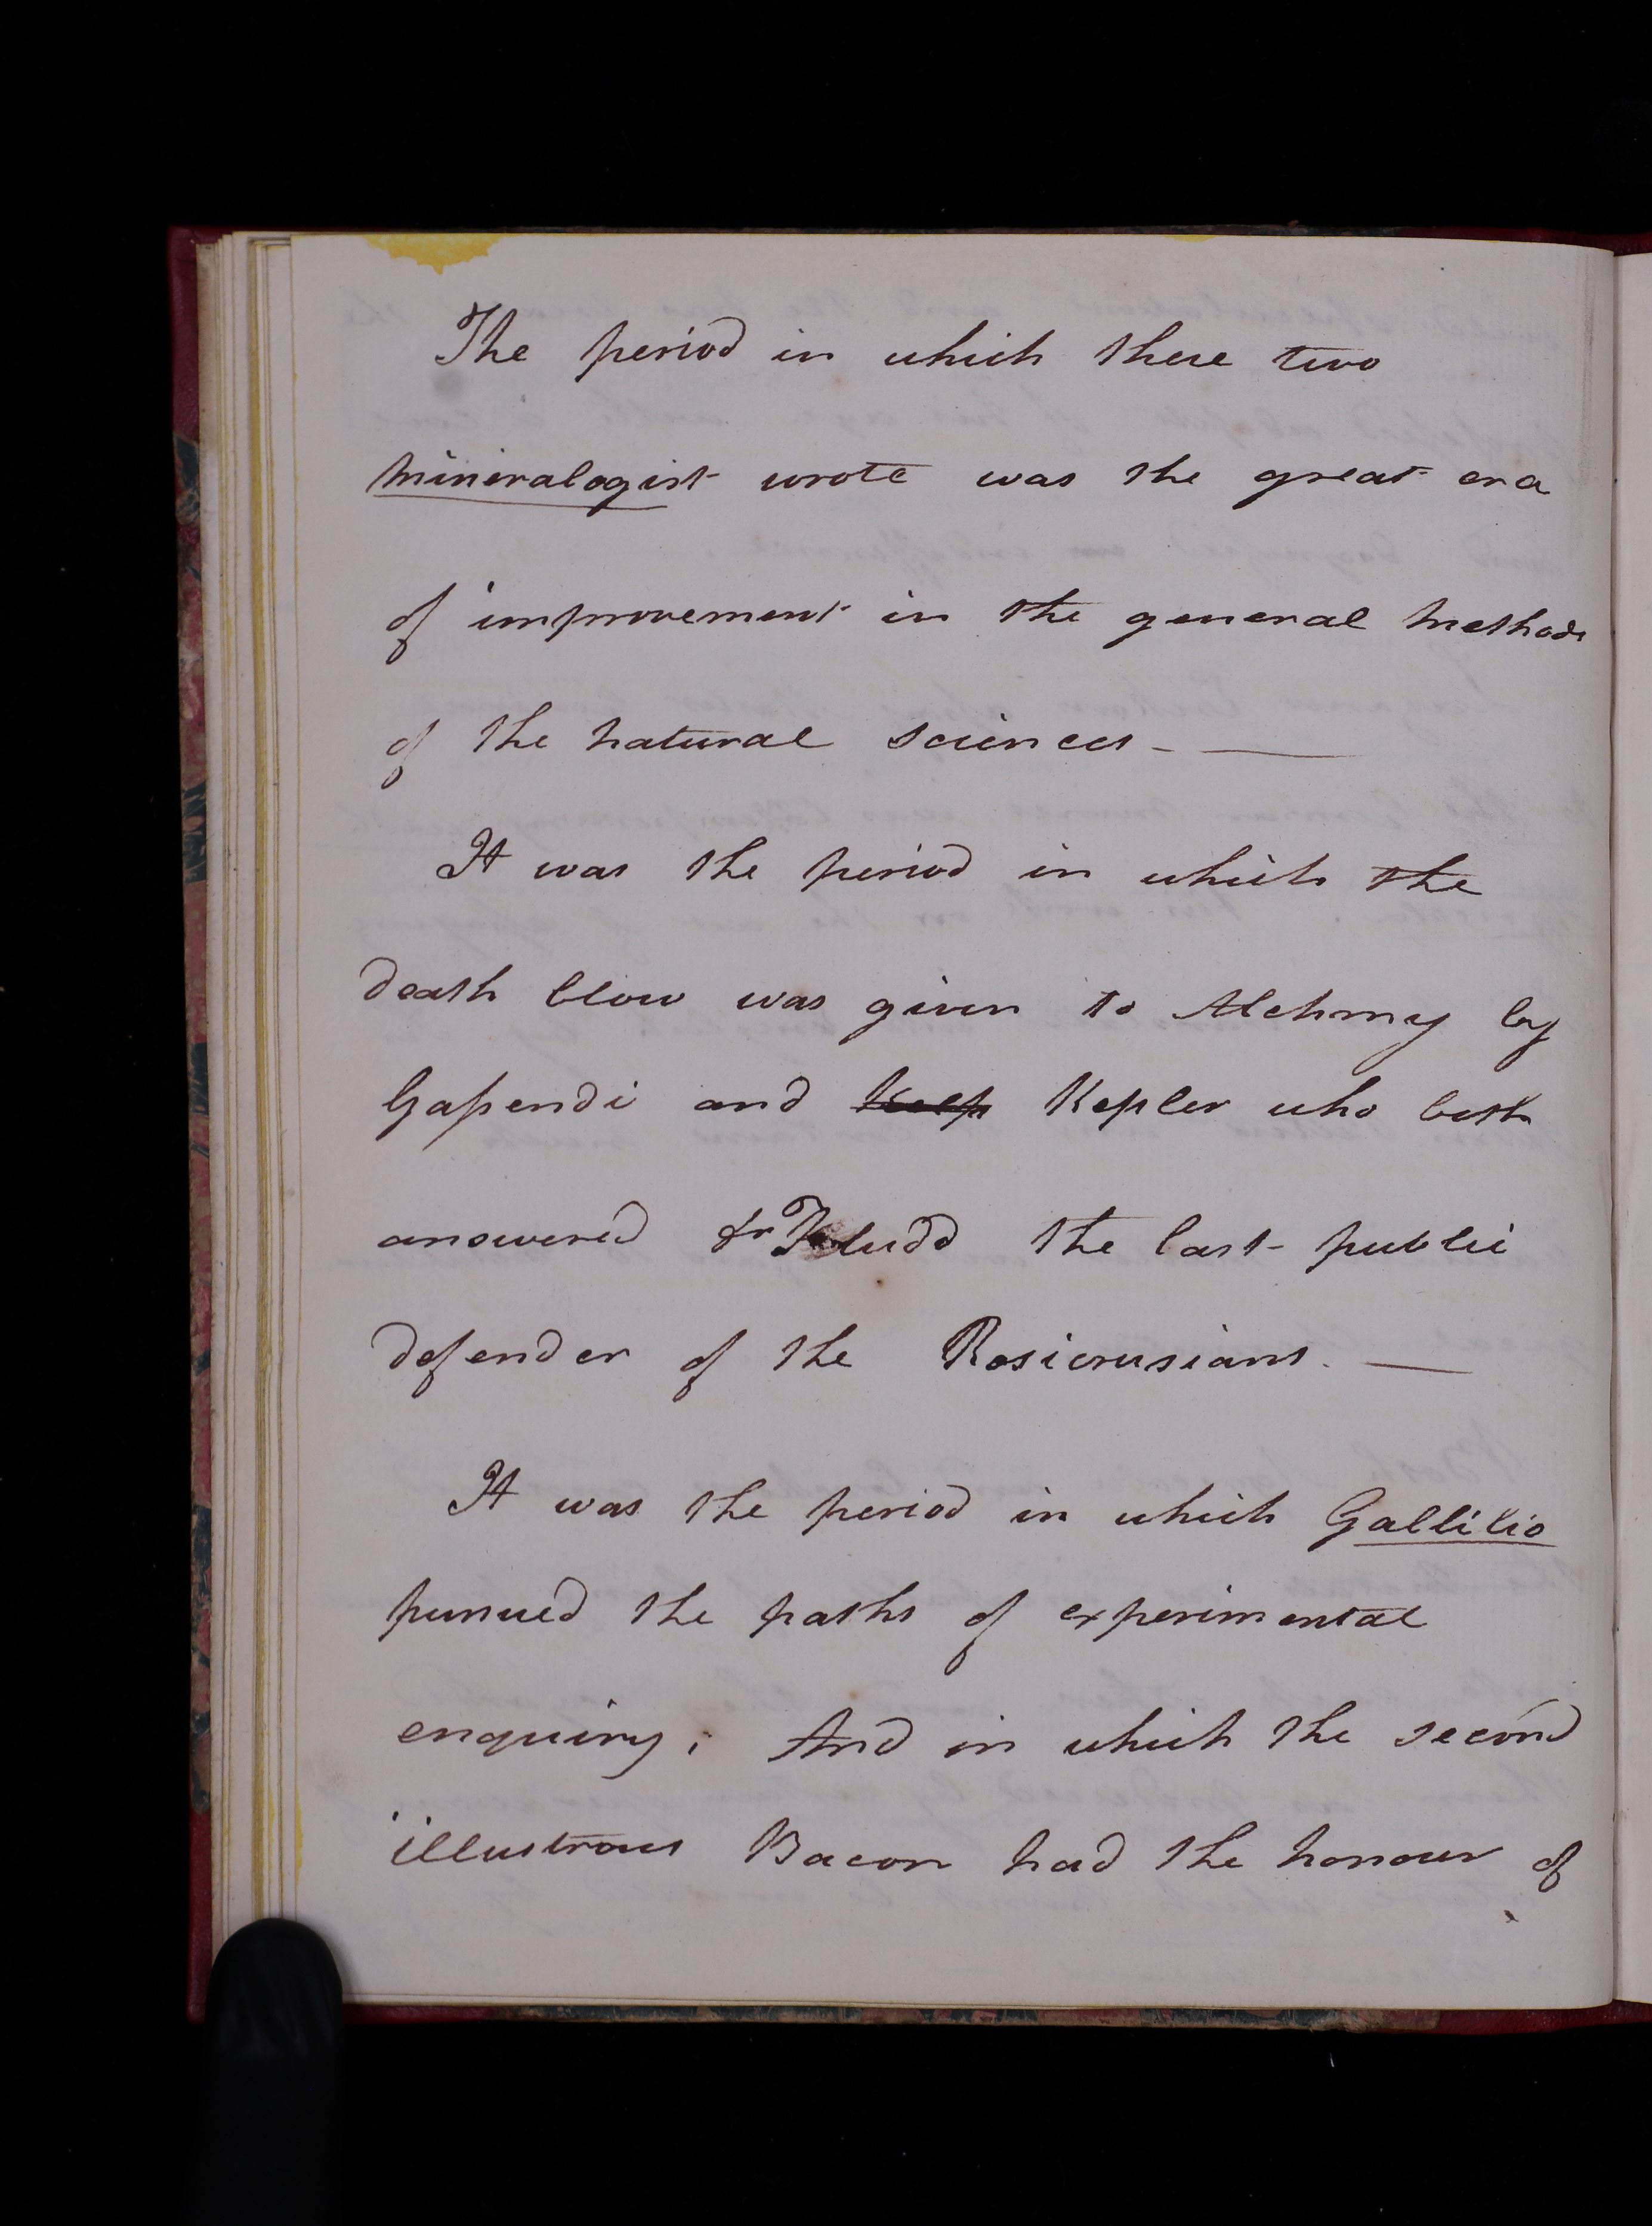 The period in which these two
mineralogist wrote was the great era
of improvement in the general methods
of the natural sciences - —
It was the period in which the
death blow was given to Alchmy by
Gassendi and Kelp Kepler who both
answered Dr Fludd the last public
defender of the Rosicrusians. —
It was the period in which Gallileo
pursued the paths of experimental
enquiry; And in which the second
illustrous Bacon had the honour of